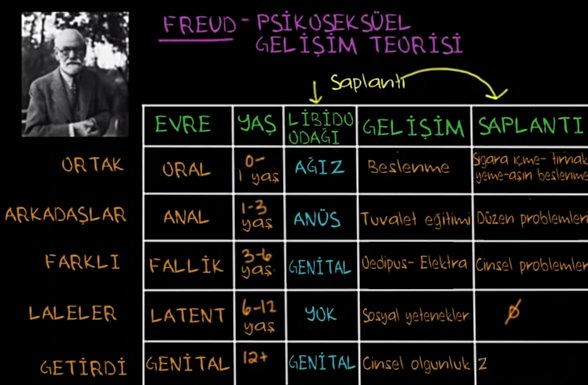 FREUD - PSİKOSEKSÜEL
GELİŞİM TEORİSİ
Saplantı
EVRE YAŞ LİBİDO ODAĞI GELİŞİM SAPLANTI
ORTAK ORAL 0-1 yaş AĞIZ Beslenme Sigara içme- tırnak yeme- aşırı beslenme
ARKADAŞLAR ANAL 1-3 yaş ANÜS Tuvalet eğitimi Düzen problemleri
FARKLI FALLİK 3-6 yaş GENİTAL Oedipus- Elektra Cinsel problemler
LALELER LATENT 6-12 yaş YOK Sosyal yetenekler ø
GETİRDİ GENİTAL 12+ GENİTAL Cinsel olgunluk z